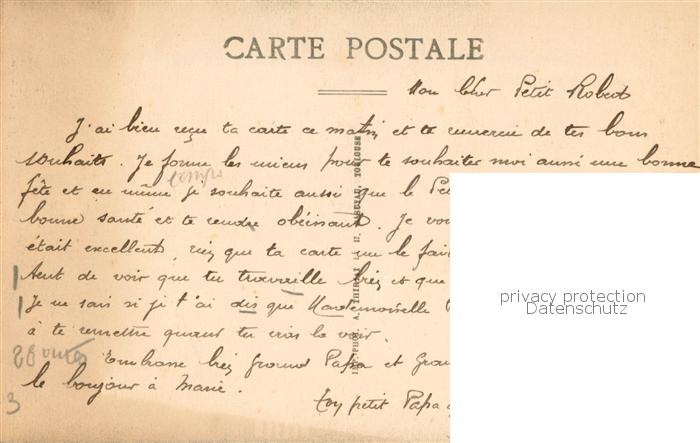 CARTE POSTALE
Mon Cher Petit Robert
J'ai bien reçu ta carte ce matin et te remercie de tes bons
souhaits. Je forme les miens pour te souhaiter moi aussi une bonne
temps
fête et en même je souhaite aussi que le Pet
bonne santé et te rendre obéissant. Je vo
était excellent, rien que ta carte me le fai
tent de voir que tu travaille bien et que
Je ne sais si je t'ai dis que Mademoiselle
à te remettre quand tu iras la voir.
Embrasse bien Grand Papa et Gran
le bonjour à Marie.
3
Ton petit Papa
PHOT. A. THIRIAT TOULOUSE
privacy protection
Datenschutz